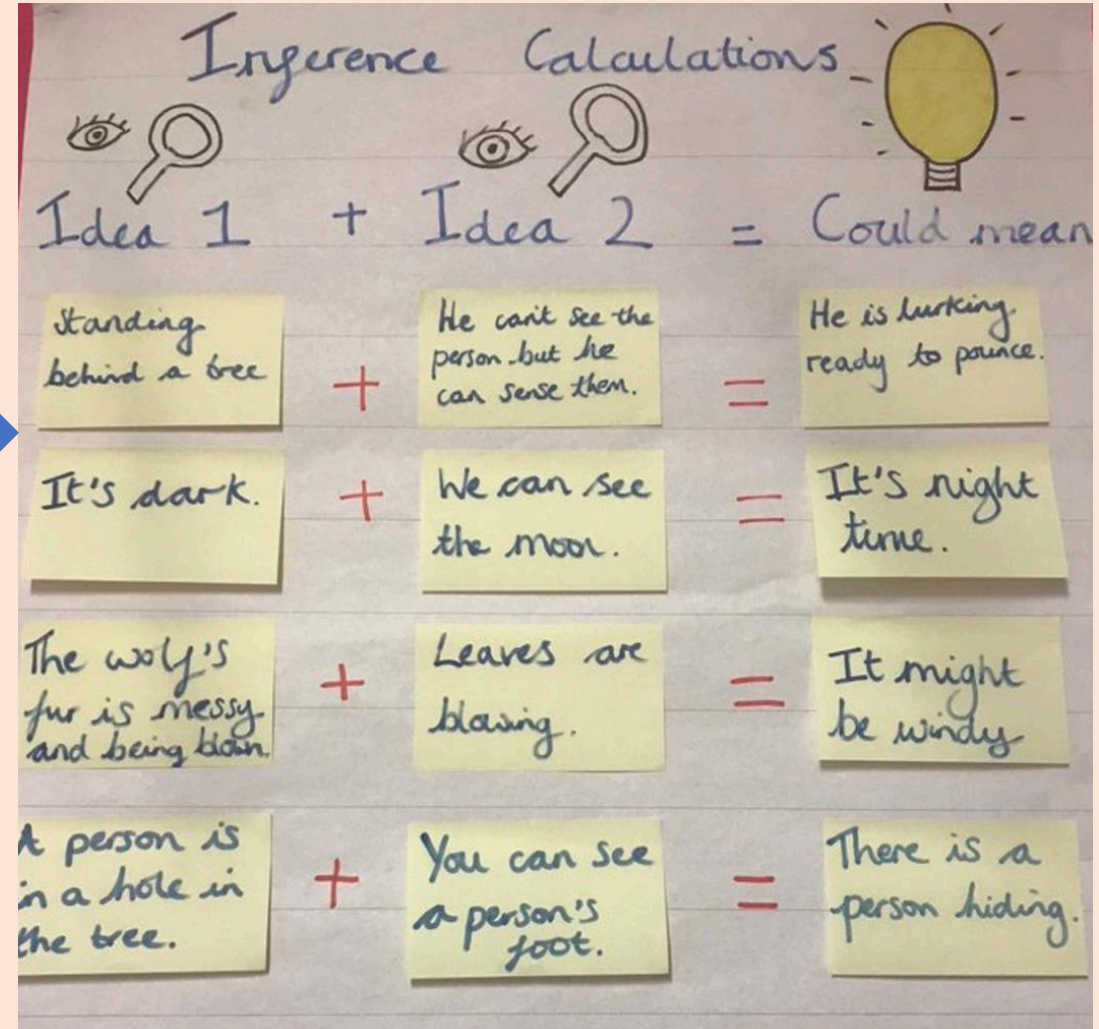 Inference Calculations
Idea 1 + Idea 2 = Could mean
Standing
behind a tree
+
He can't see the
person but he
can sense them.
=
He is lurking
ready to pounce.
It's dark.
+
We can see
the moon.
=
It's night
time.
The wolf's
fur is messy
and being blown.
+
Leaves are
blowing.
=
It might
be windy
A person is
in a hole in
the tree.
+
You can see
a person's
foot.
=
There is a
person hiding.